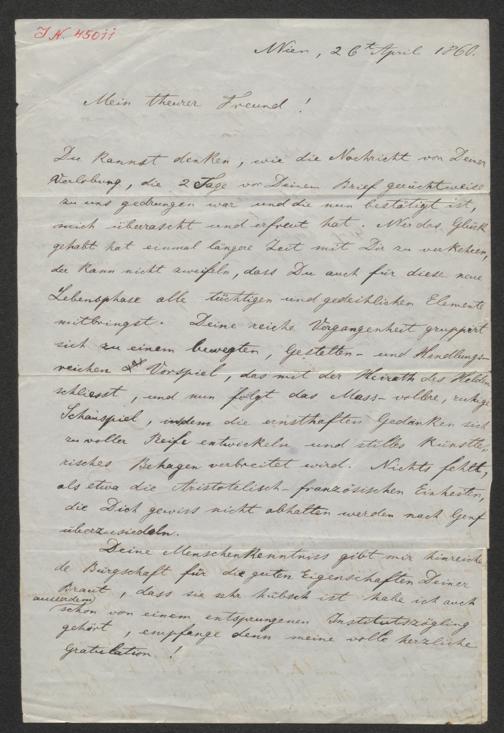 J.N. 45011
Wien, 26t April 1860.
Mein theurer Freund!
Du kannst denken, wie die Nachricht von Deiner
Verlobung, die 2 Tage vor Deinem Brief gerüchtweise
zu uns gedrungen war und die nun bestätigt ist,
mich überascht und erfreut hat. Wer das Glück
gehabt hat einmal längere Zeit mit Dir zu verkehren,
der kann nicht zweifeln, dass Du auch für diese neue
Lebensphase alle tüchtigen und gedeihlichen Elemente
mitbringst. Deine reiche Vergangenheit gruppirt
sich zu einem bewegten, Gestalten- und Handlungs-
reichen Vorspiel, das mit der Heirath des Helden
schliesst, und nun folgt das Mass-volle, ruhige
Schauspiel, indem die ernsthaften Gedanken sich
zu voller Reife entwickeln und stilles künstle-
risches Behagen verbreitet wird. Nichts fehlt,
als etwa die Aristotelisch-französischen Einheiten,
die Dich gewiss nicht abhalten werden nach Genf
überzusiedeln.
Deine Menschenkenntniss gibt mir hinreichen-
de Bürgschaft für die guten Eigenschaften Deiner
Braut, dass sie sehr hübsch ist habe ich auch
ausserdem
schon von einem entsprungenen Institutszögling
gehört, empfange denn meine volle herzliche
Gratulation!